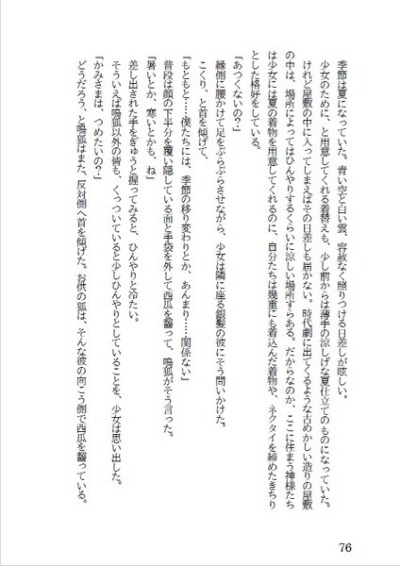 季節は夏になっていた。青い空と白い雲、容赦なく照りつける日差しが眩しい。
少女のために、と用意してくれる着替えも、少し前からは薄手の涼しげな夏仕立てのものになっていた。
けれど屋敷の中に入ってしまえばその日差しも届かない。時代劇に出てくるような古めかしい造りの屋敷
の中は、場所によってはひんやりするくらいに涼しい場所すらある。だからなのか、ここに住まう神様たち
は少女には夏の着物を用意してくれるのに、自分たちは幾重にも着込んだ着物や、ネクタイを締めたきちり
とした格好をしている。
「あつくないの?」
縁側に腰かけて足をぶらぶらさせながら、少女は隣に座る銀髪の彼にそう問いかけた。
こくり、と首を傾げて、
「もともと…‥僕たちには、季節の移り変わりとか、あんまり……関係ない」
普段は顔の下半分を覆い隠している面と手袋を外して西瓜を齧って、鳴狐がそう言った。
「暑いとか、寒いとかも、ね」
差し出された手をぎゅうと握ってみると、ひんやりと冷たい。
そういえば鳴狐以外の皆も、くっついていると少しひんやりとしていることを、少女は思い出した。
「かみさまは、つめたいの?」
どうだろう、と鳴狐はまた、反対側へ首を傾げた。お供の狐は、そんな彼の向こう側で西瓜を齧っている。
76